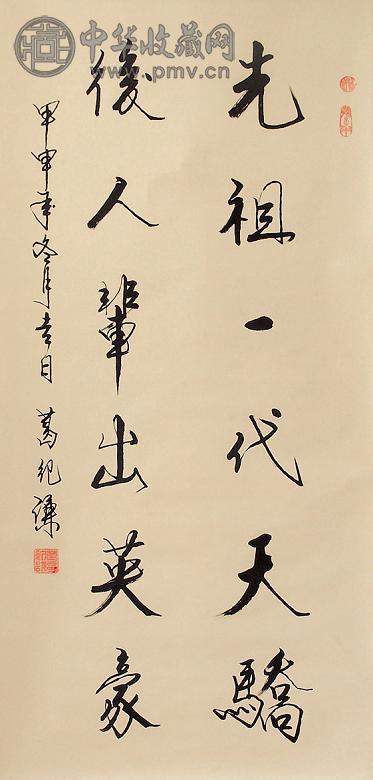 中华收藏网
www.pmv.cn
光祖一代天驕
後人輩出英豪
甲申年冬月吉日 葛纪谦